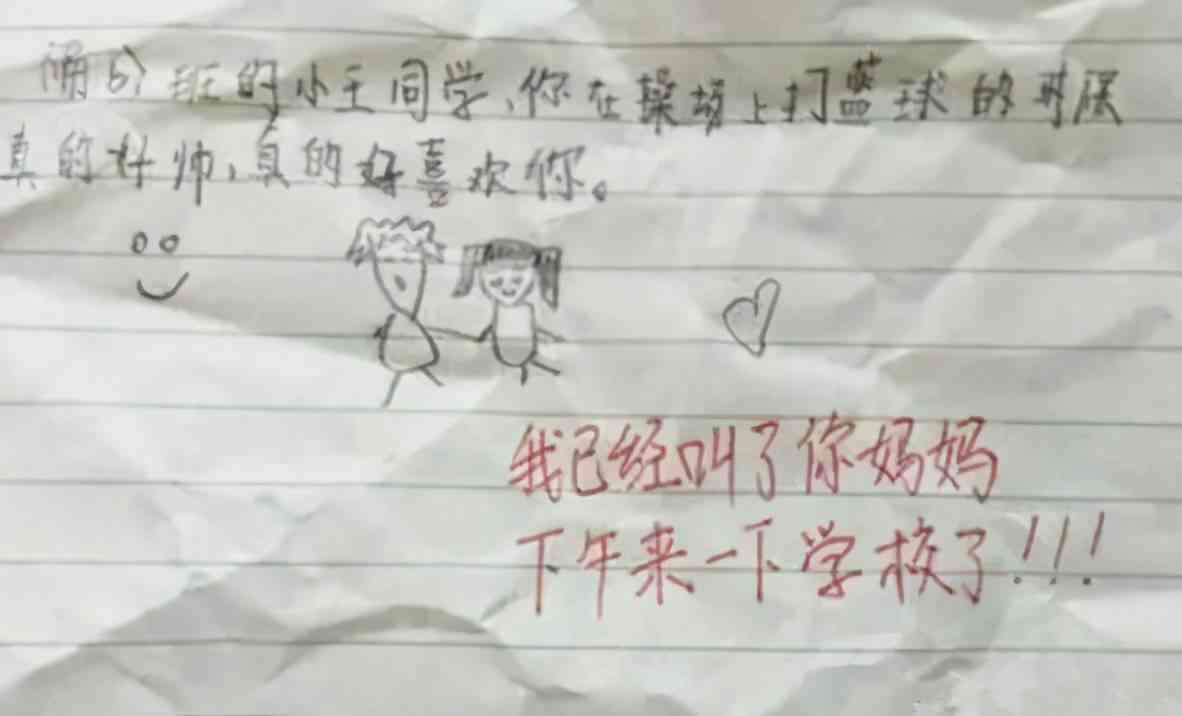 班的小王同学,你在操场上打蓝球的时候
真的好帅,真的好喜欢你。
我已经叫了你妈妈
下午来一下学校了!!!